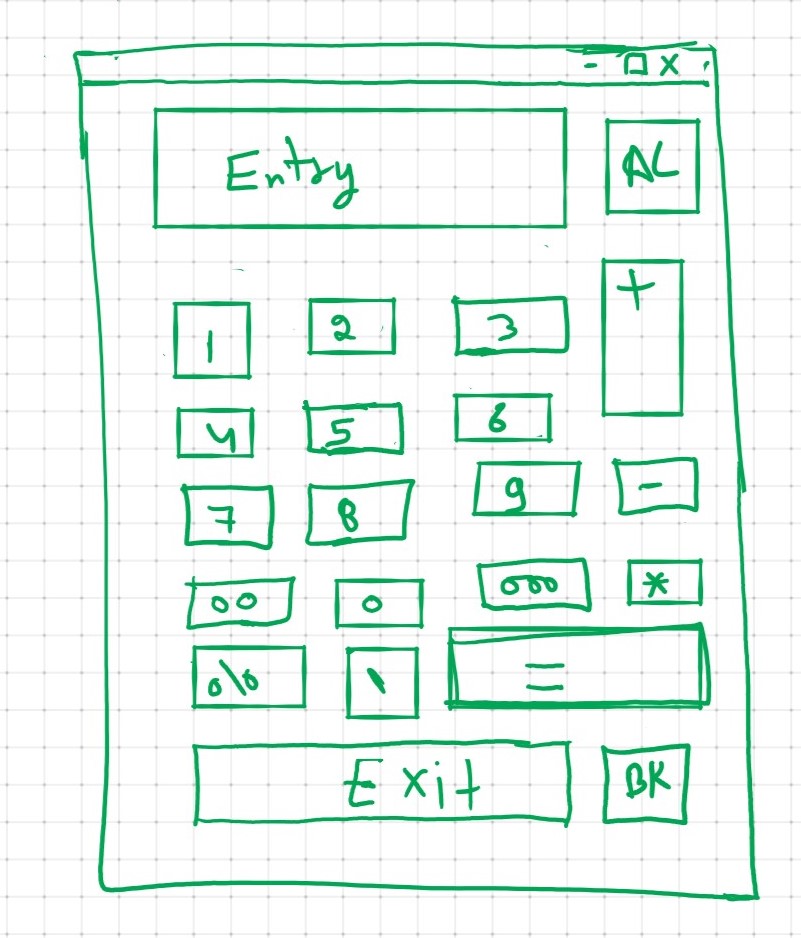 - □ X
Entry AC
+
1 2 3
4 5 6
7 8 9 -
00 0 000 *
% \ =
Exit BK